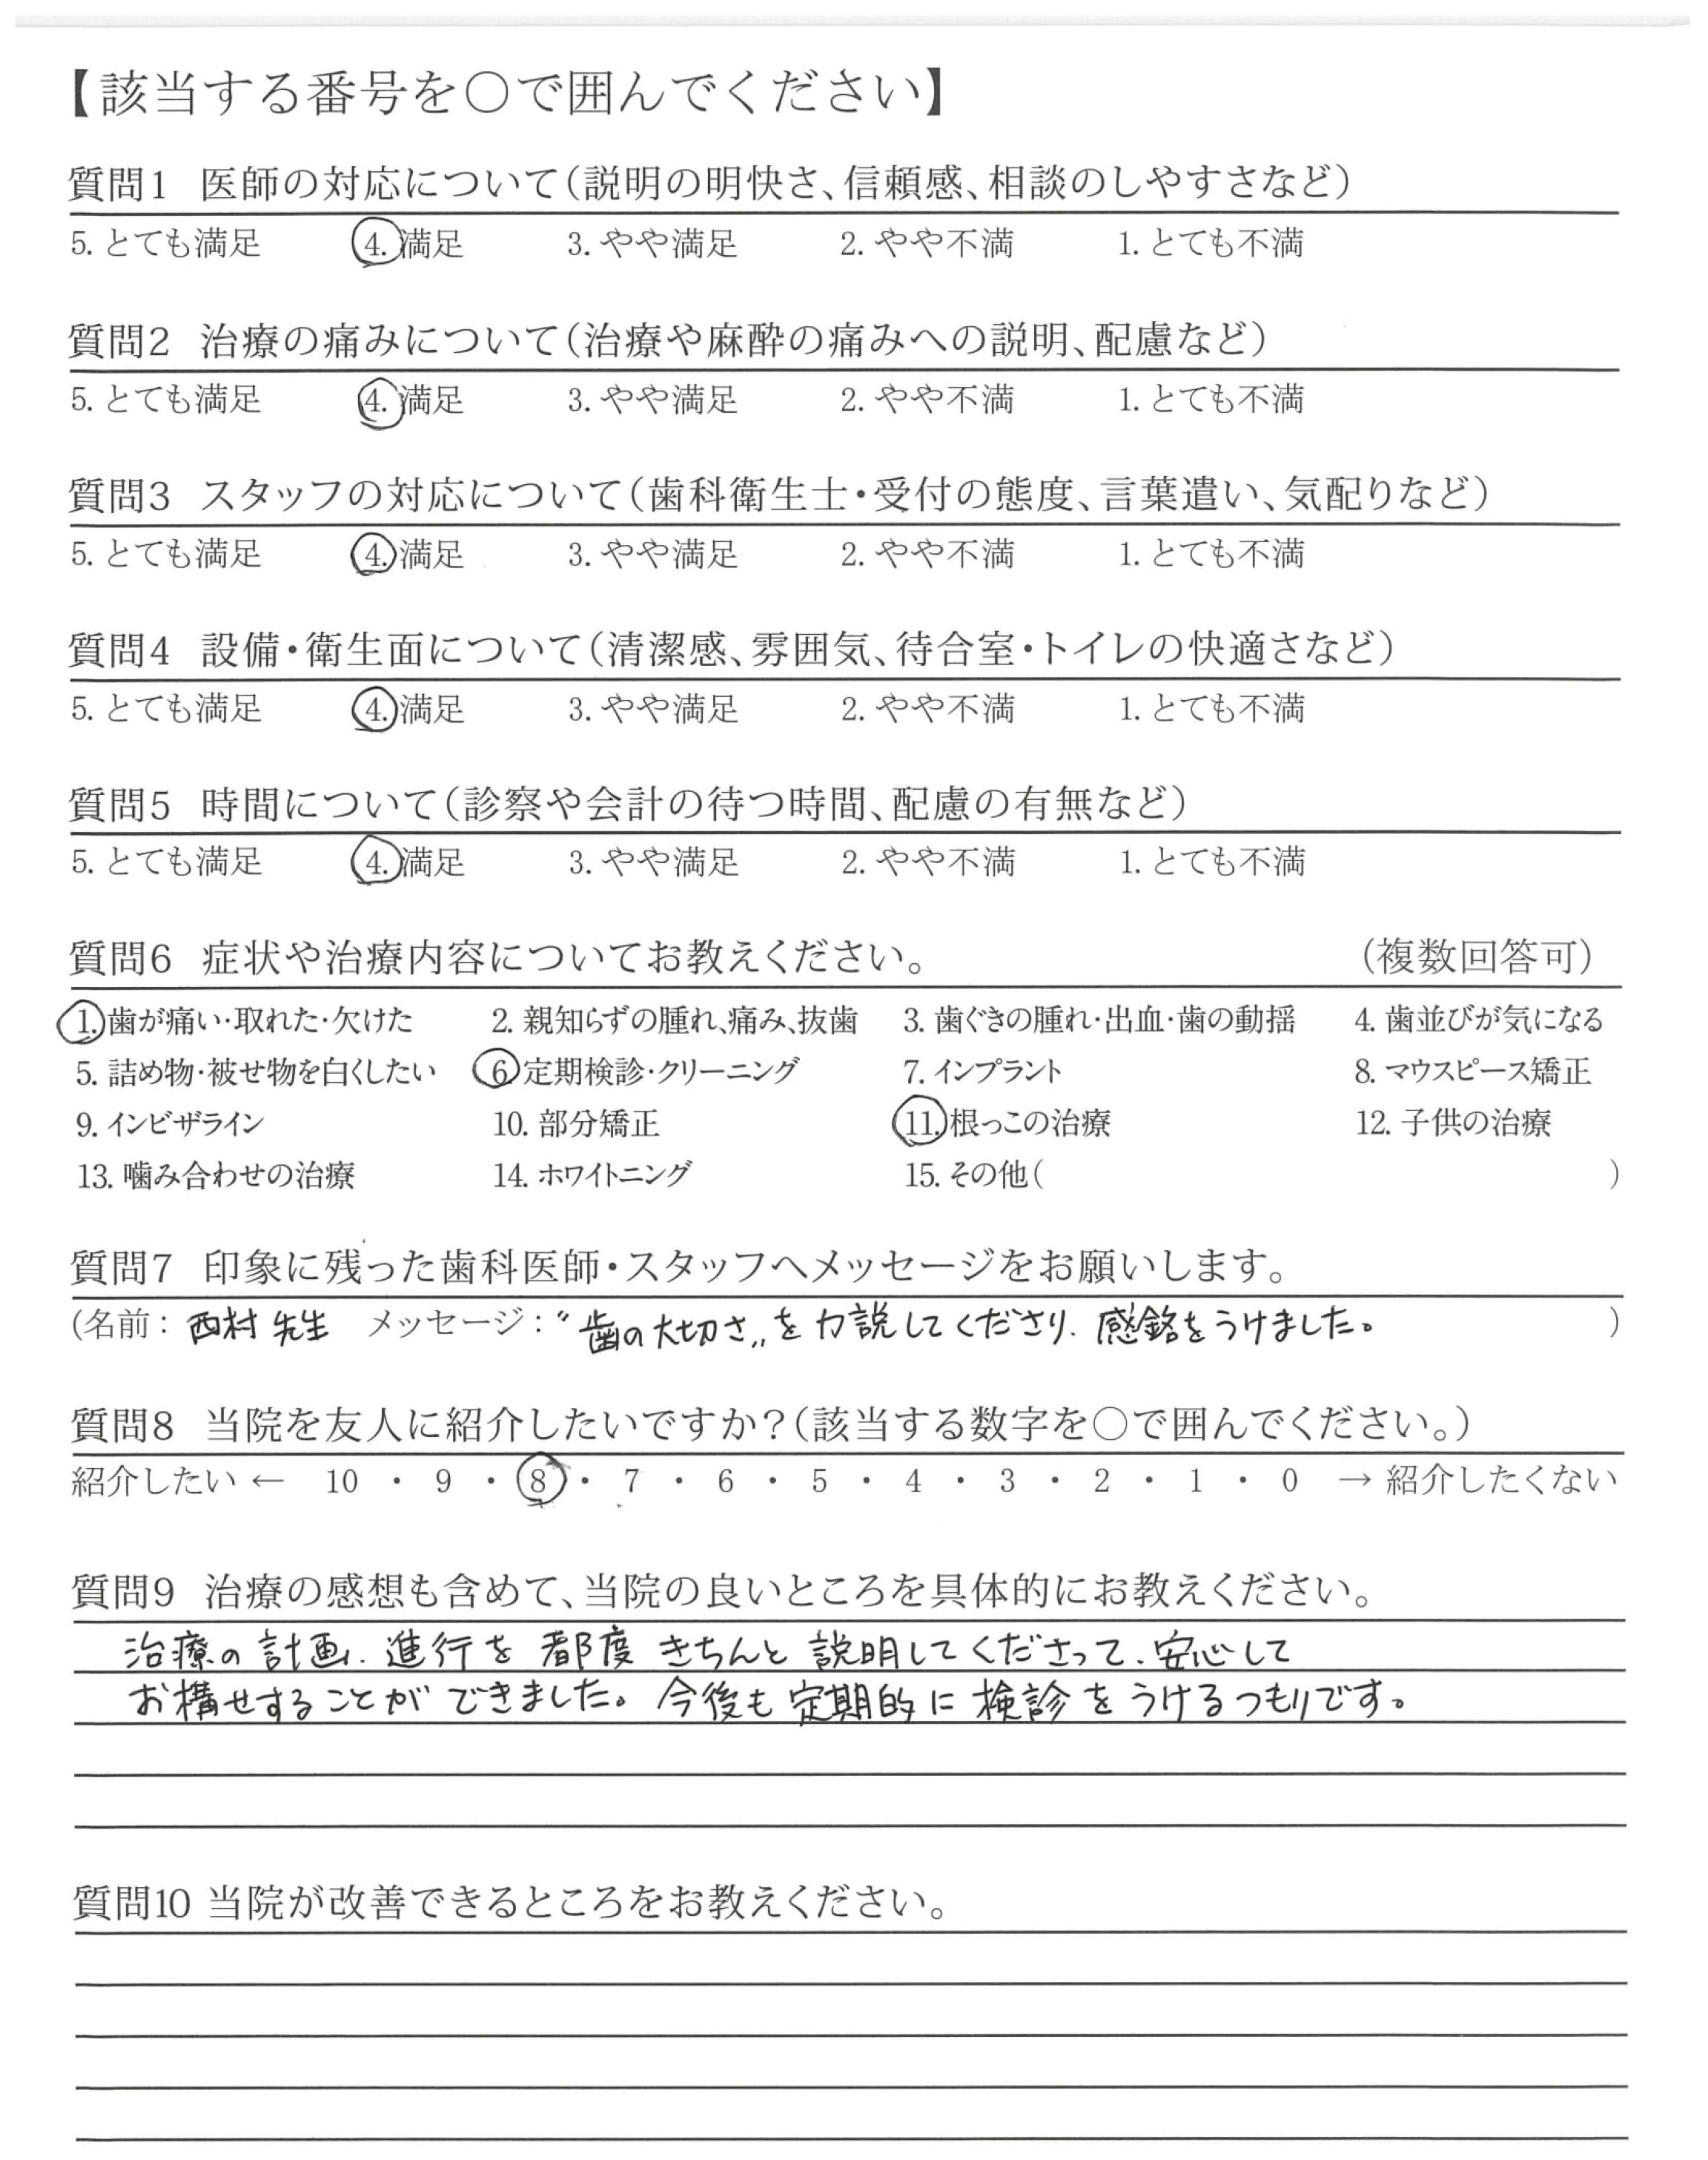 【該当する番号を○で囲んでください】
質問1 医師の対応について(説明の明快さ、信頼感、相談のしやすさなど)
5. とても満足 4. 満足 3. やや満足 2. やや不満 1. とても不満
質問2 治療の痛みについて(治療や麻酔の痛みへの説明、配慮など)
5. とても満足 4. 満足 3. やや満足 2. やや不満 1. とても不満
質問3 スタッフの対応について(歯科衛生士・受付の態度、言葉遣い、気配りなど)
5. とても満足 4. 満足 3. やや満足 2. やや不満 1. とても不満
質問4 設備・衛生面について(清潔感、雰囲気、待合室・トイレの快適さなど)
5. とても満足 4. 満足 3. やや満足 2. やや不満 1. とても不満
質問5 時間について(診察や会計の待つ時間、配慮の有無など)
5. とても満足 4. 満足 3. やや満足 2. やや不満 1. とても不満
質問6 症状や治療内容についてお教えください。 (複数回答可)
1. 歯が痛い・取れた・欠けた 2. 親知らずの腫れ、痛み、抜歯 3. 歯ぐきの腫れ・出血・歯の動揺 4. 歯並びが気になる
5. 詰め物・被せ物を白くしたい 6. 定期検診・クリーニング 7. インプラント 8. マウスピース矯正
9. インビザライン 10. 部分矯正 11. 根っこの治療 12. 子供の治療
13. 噛み合わせの治療 14. ホワイトニング 15. その他( )
質問7 印象に残った歯科医師・スタッフへメッセージをお願いします。
(名前: 西村先生 メッセージ: 〝歯の大切さ〟を力説してくださり、感銘をうけました。 )
質問8 当院を友人に紹介したいですか?(該当する数字を○で囲んでください。)
紹介したい ← 10 ・ 9 ・ 8 ・ 7 ・ 6 ・ 5 ・ 4 ・ 3 ・ 2 ・ 1 ・ 0 → 紹介したくない
質問9 治療の感想も含めて、当院の良いところを具体的にお教えください。
治療の計画、進行を都度きちんと説明してくださって、安心して
お構せすることができました。今後も定期的に検診をうけるつもりです。
質問10 当院が改善できるところをお教えください。